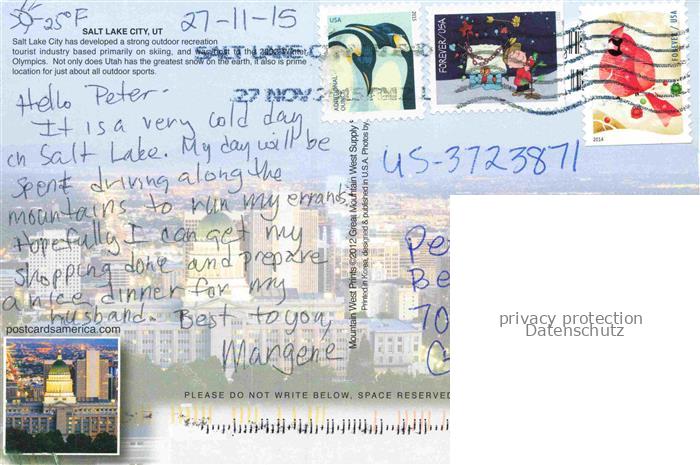 -25°F
27-11-15
SALT LAKE CITY, UT
Salt Lake City has developed a strong outdoor recreation
tourist industry based primarily on skiing, and was host to the 2002 Winter
Olympics. Not only does Utah has the greatest snow on the earth, it also is prime
location for just about all outdoor sports.
SALT LAKE
27 NOV 2015 PM
USA
2015
ADDITIONAL OUNCE
FOREVER/USA
FOREVER/USA
2014
Hello Peter-
It is a very cold day
in Salt Lake. My day will be
spent driving along the
mountains to run my errands.
Hopefully I can get my
shopping done and prepare
a nice dinner for my
husband. Best to you,
Margene
US-3723871
Pe
Be
70
Mountain West Prints ©2012 Great Mountain West Supply
Printed in Korea, designed & published in U.S.A. Photos by
postcardsamerica.com
PLEASE DO NOT WRITE BELOW, SPACE RESERVED
privacy protection
Datenschutz